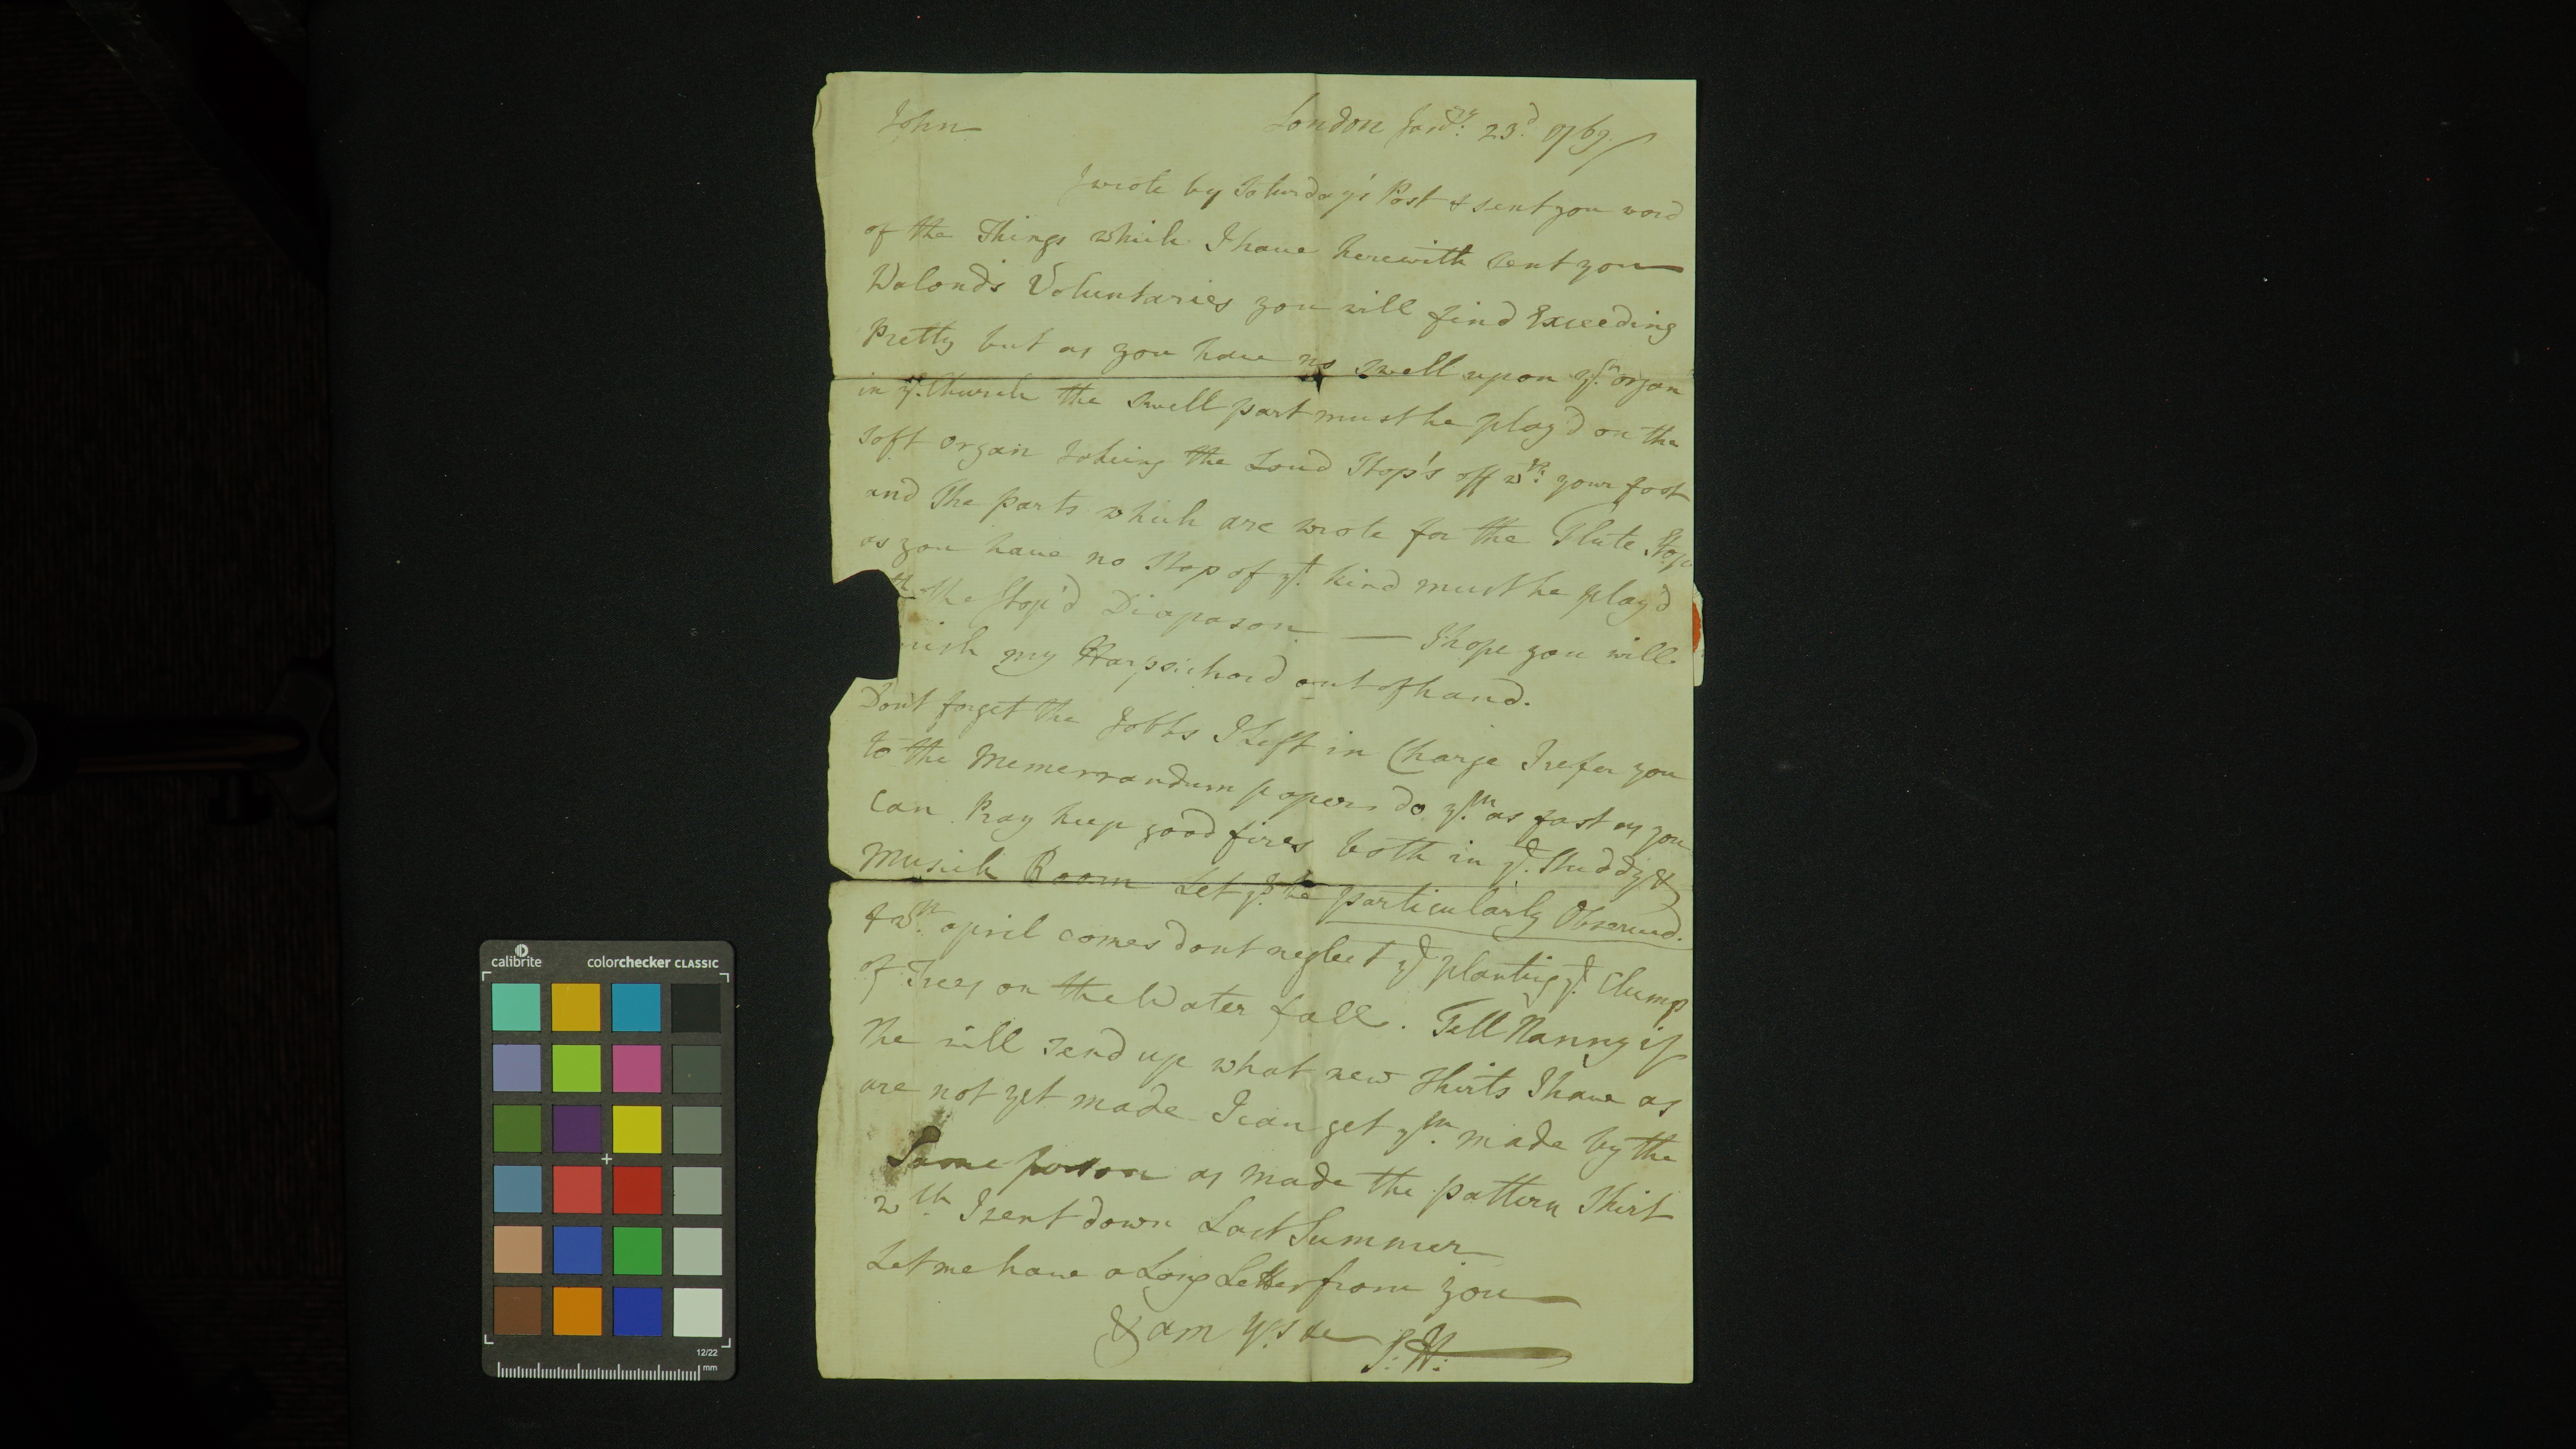 John London Janry: 23d. 1769.
I wrote by Saturday's Post & sent you word
of the Things which I have herewith sent you
Walond's Voluntaries you will find Exceeding
Pretty but as you have no swell upon yr. organ
in ye. Church the swell part must be play'd on the
soft organ takeing the Loud Stop's off wth. your foot
and The parts which are wrote for the Flute Stop
as you have no Stop of yt. kind must be play'd
th the Stop'd Diapason — I hope you will
nish my Harpsichord out of hand.
Don't forget the Jobbs I left in Charge I refer you
to the Memerrandum papers do ym. as fast as you
Can Pray keep good fires both in ye. Studdy &
Musick Room Let yt. be particularly Observed.
& wn. april comes dont neglect ye planting ye. Clump
of Trees on the Water fall. Tell Nanny if
she will send up what new Shirts I have as
are not yet made I can get ym. made by the
Same person as made the pattern Shirt
wch I sent down Last Summer
Let me have a Long Letter from you
& am yrs &c J: H:
calibrite colorchecker CLASSIC
12/22
mm